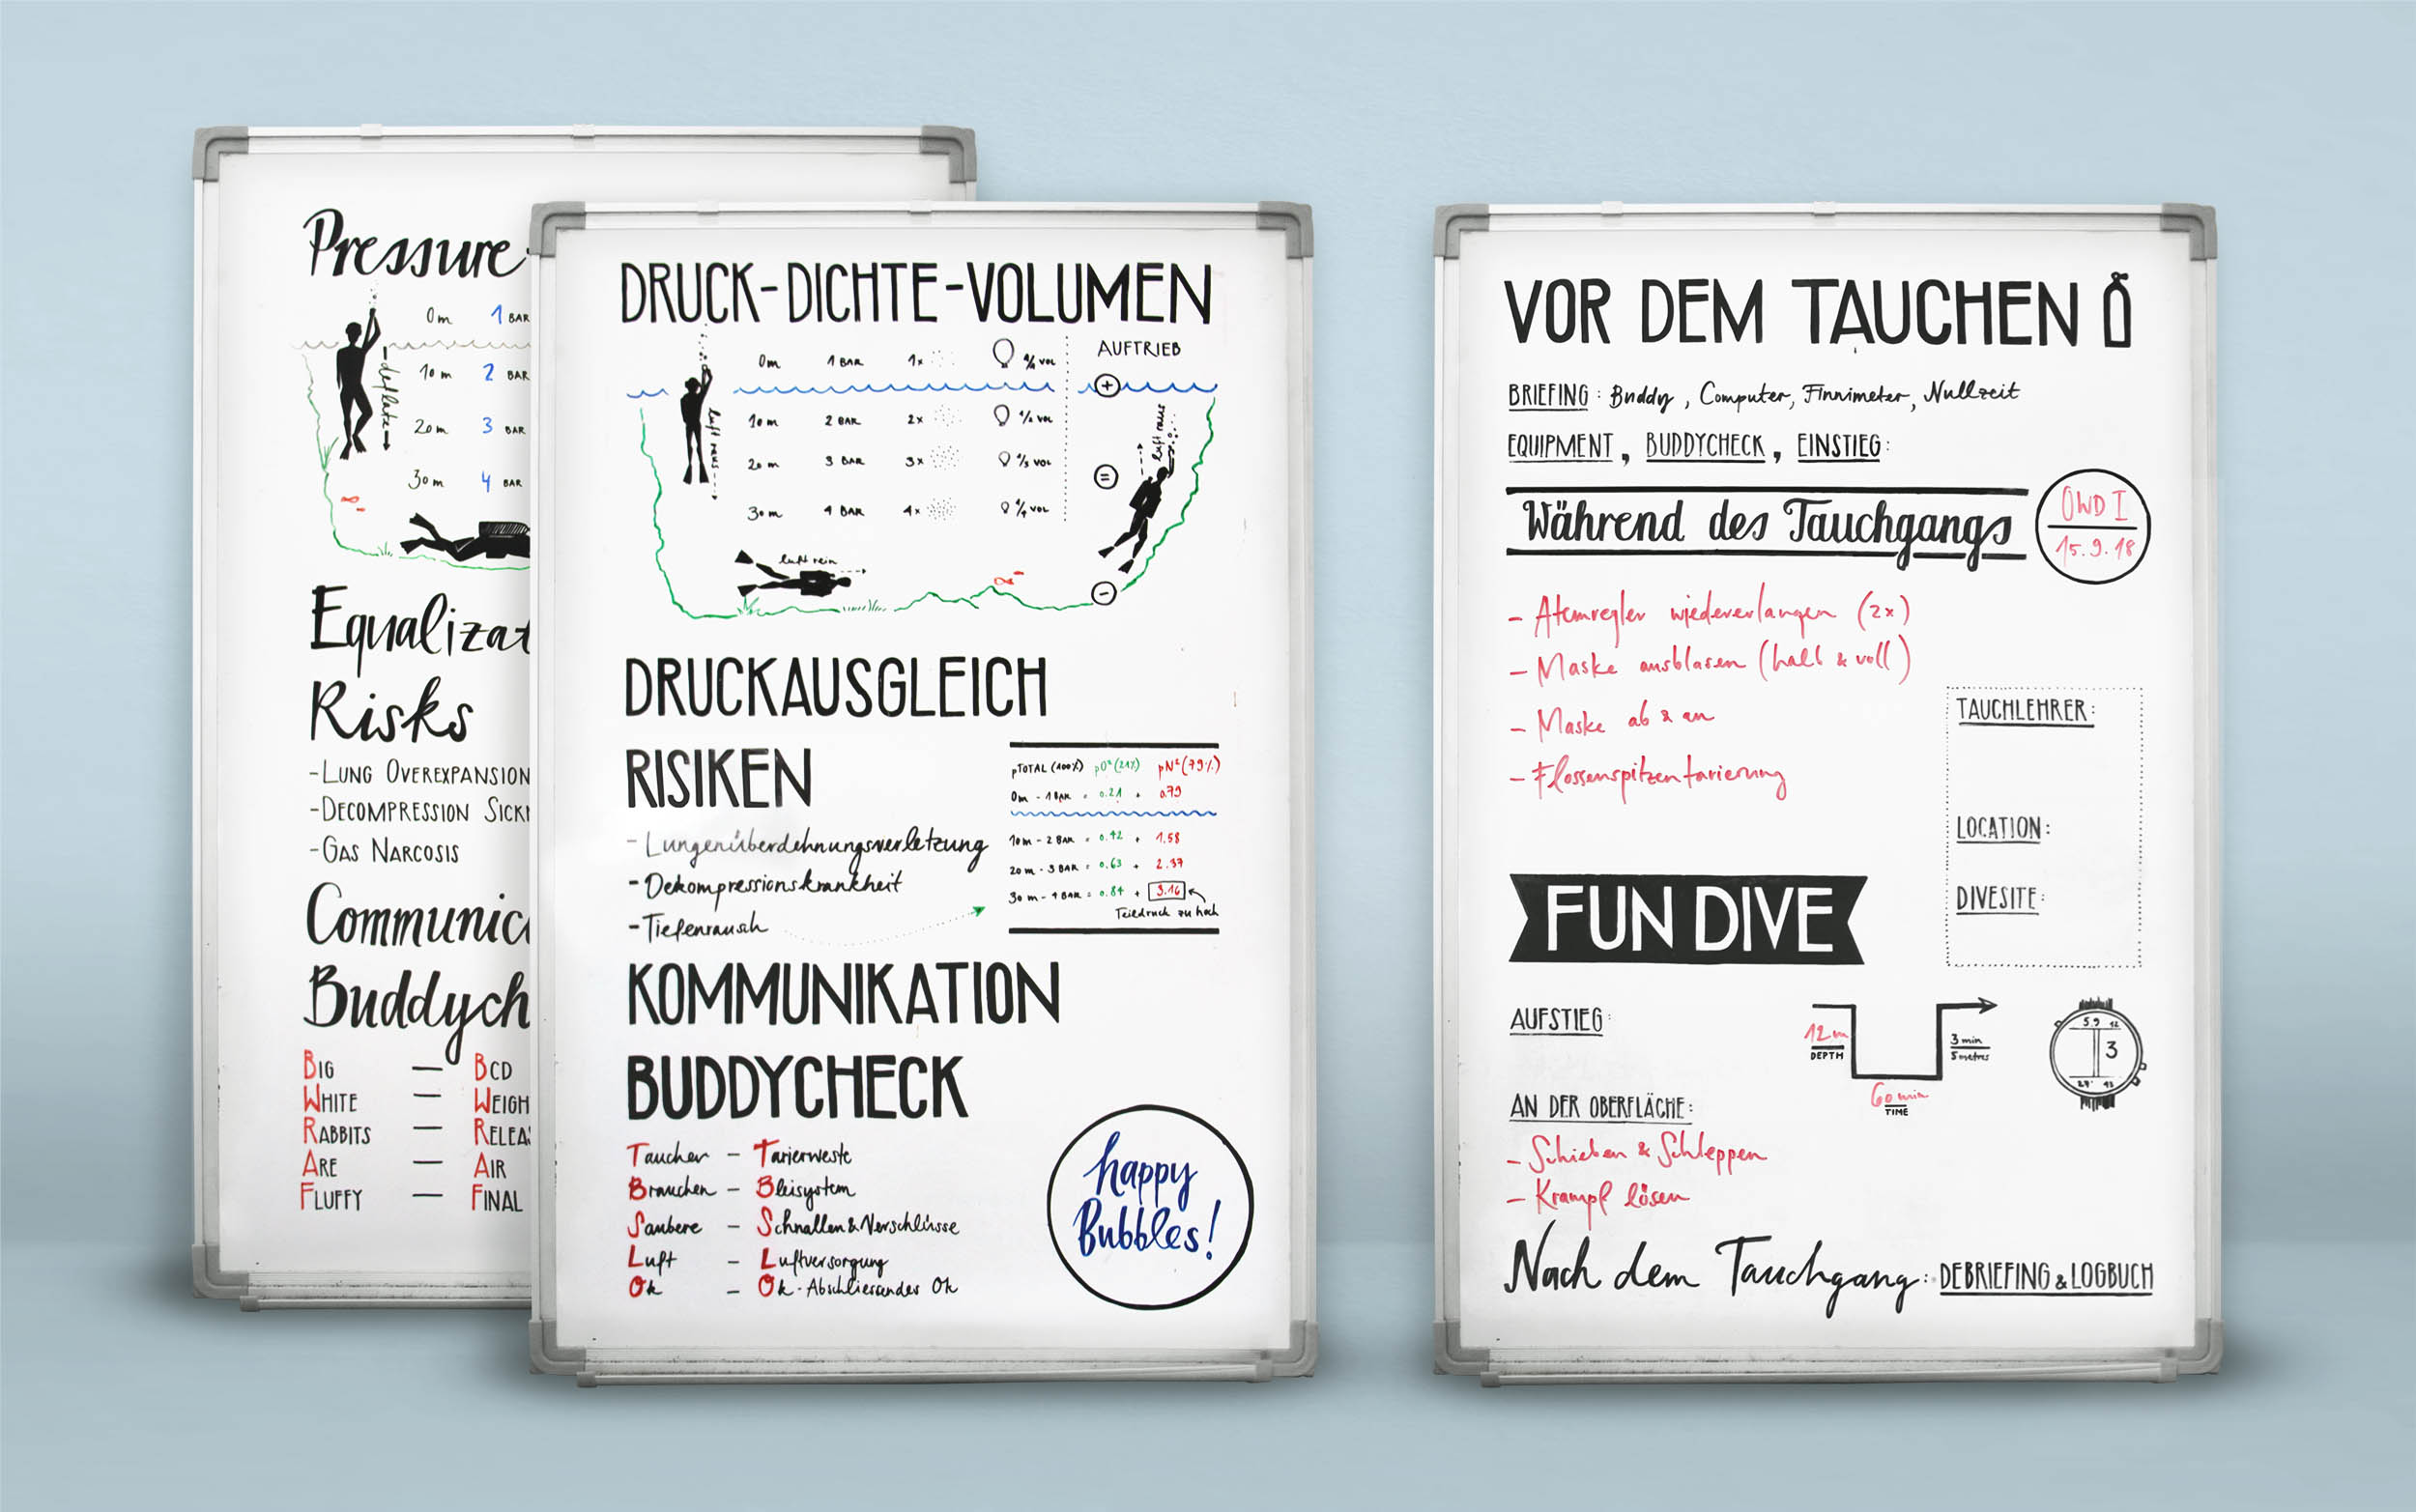 Pressure-
0m 1 BAR
10m 2 BAR
20m 3 BAR
30m 4 BAR
deflate
Equalizat
Risks
-LUNG OVEREXPANSION
-DECOMPRESSION SICK
-GAS NARCOSIS
Communic
Buddych
BIG — BCD
WHITE — WEIGH
RABBITS — RELEA
ARE — AIR
FLUFFY — FINAL
DRUCK-DICHTE-VOLUMEN
0m 1 BAR 1x 1/1 VOL AUFTRIEB
+
10m 2 BAR 2x 1/2 VOL
20m 3 BAR 3x 1/3 VOL
=
30m 4 BAR 4x 1/4 VOL
luft raus
luft raus
luft rein
-
DRUCKAUSGLEICH
RISIKEN
- Lungenüberdehnungsverletzung
- Dekompressionskrankheit
- Tiefenrausch
pTOTAL (100%) pO² (21%) pN² (79%)
0m - 1 BAR = 0.21 + 0.79
10m - 2 BAR = 0.42 + 1.58
20m - 3 BAR = 0.63 + 2.37
30m - 4 BAR = 0.84 + 3.16
Teildruck zu hoch
KOMMUNIKATION
BUDDYCHECK
Taucher - Tarierweste
Brauchen - Bleisystem
Saubere - Schnallen & Verschlüsse
Luft - Luftversorgung
Ok - Ok - Abschliessendes Ok
happy
Bubbles!
VOR DEM TAUCHEN
BRIEFING: Buddy, Computer, Finnimeter, Nullzeit
EQUIPMENT, BUDDYCHECK, EINSTIEG:
Während des Tauchgangs
OWD I
15.9.18
- Atemregler wiedererlangen (2x)
- Maske ausblasen (halb & voll)
- Maske ab & an
- Flossenspitzentarierung
TAUCHLEHRER:
LOCATION:
DIVESITE:
FUN DIVE
AUFSTIEG:
12m
DEPTH
60 min
TIME
3 min
5 metres
5.9 12
3
27° 43
AN DER OBERFLÄCHE:
- Schieben & Schleppen
- Krampf lösen
Nach dem Tauchgang: DEBRIEFING & LOGBUCH